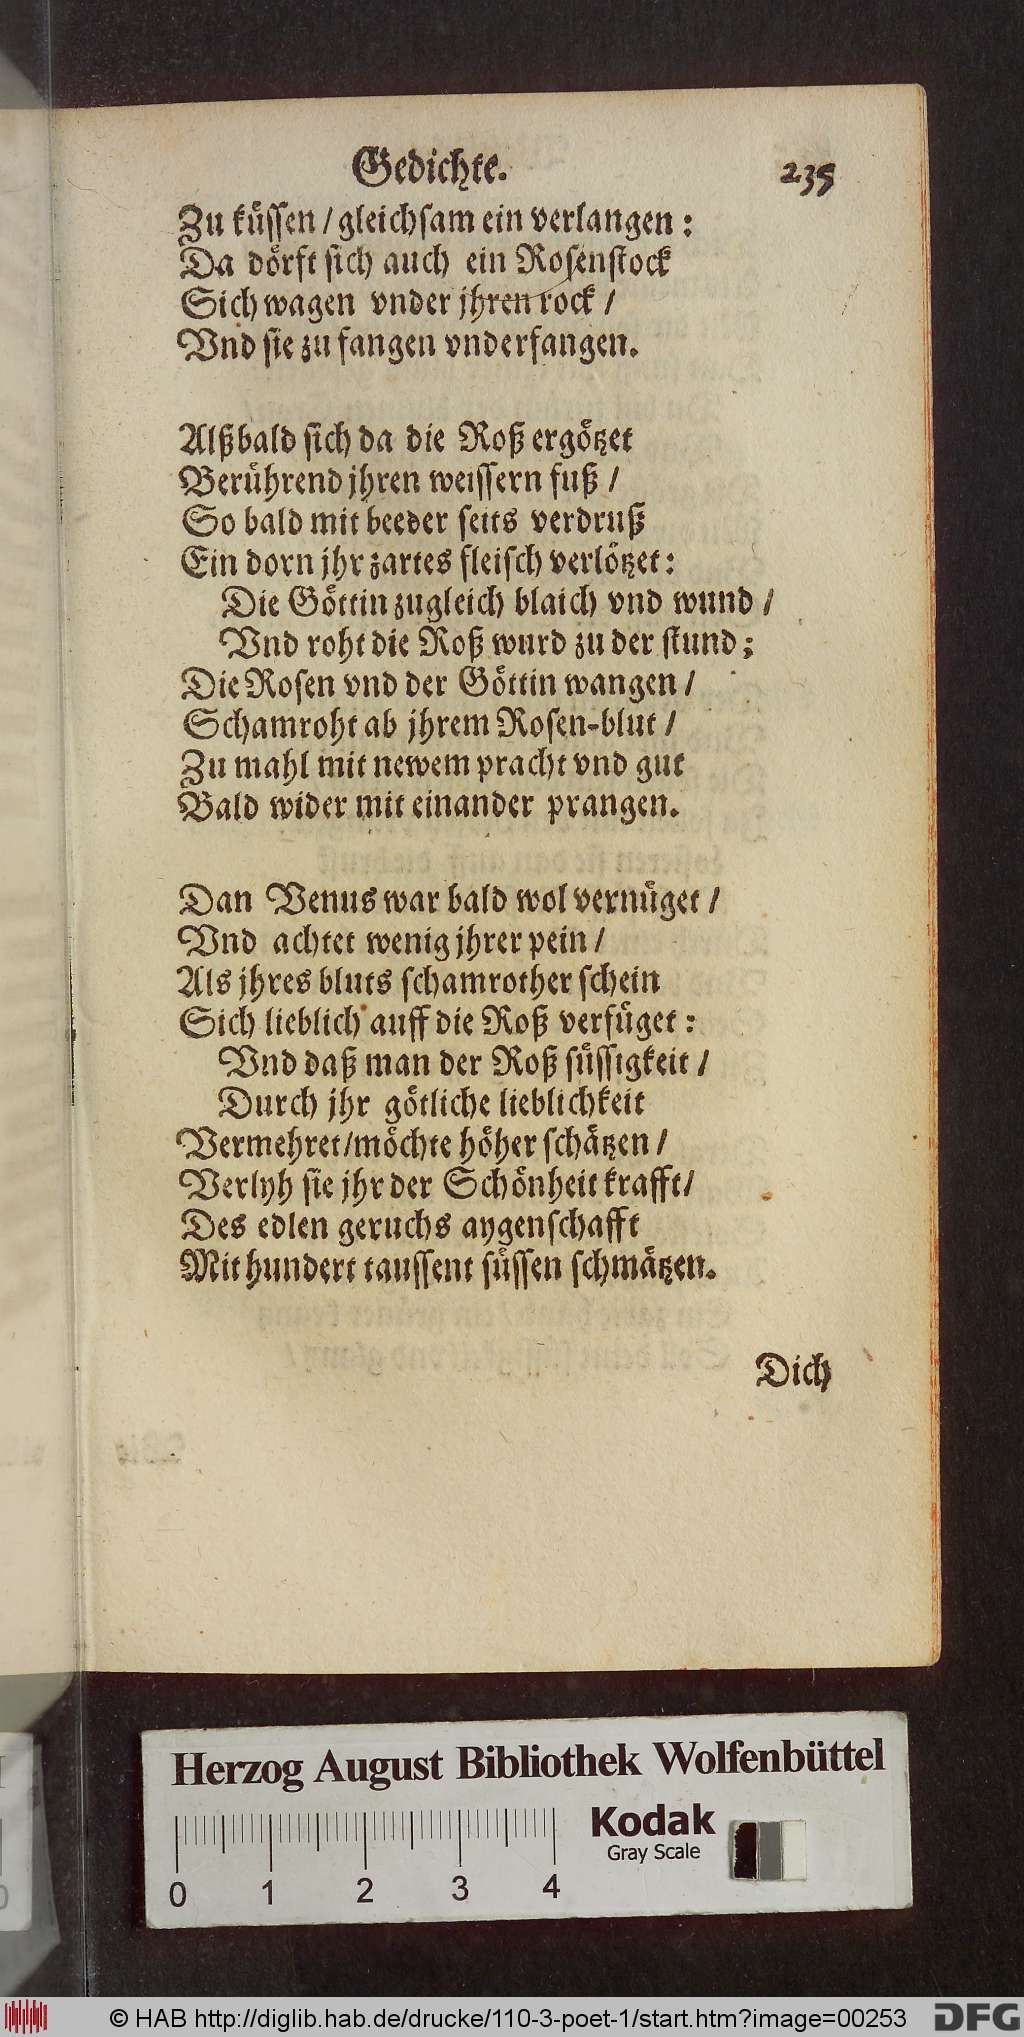 Gedichte. 235
Zu küssen / gleichsam ein verlangen :
Da dörft sich auch ein Rosenstock
Sich wagen vnder jhren rock /
Vnd sie zu fangen vnderfangen.
Alßbald sich da die Roß ergötzet
Berührend jhren weissern fuß /
So bald mit beeder seits verdruß
Ein dorn jhr zartes fleisch verlötzet :
Die Göttin zugleich blaich vnd wund /
Vnd roht die Roß wurd zu der stund ;
Die Rosen vnd der Göttin wangen /
Schamroht ab jhrem Rosen-blut /
Zu mahl mit newem pracht vnd gut
Bald wider mit einander prangen.
Dan Venus war bald wol vernüget /
Vnd achtet wenig jhrer pein /
Als jhres bluts schamrother schein
Sich lieblich auff die Roß verfüget :
Vnd daß man der Roß süssigkeit /
Durch jhr götliche lieblichkeit
Vermehret / möchte höher schätzen /
Verlyh sie jhr der Schönheit krafft /
Des edlen geruchs aygenschafft
Mit hundert taussent süssen schmätzen.
Dich
Herzog August Bibliothek Wolfenbüttel
Kodak
Gray Scale
0 1 2 3 4
© HAB http://diglib.hab.de/drucke/110-3-poet-1/start.htm?image=00253 DFG